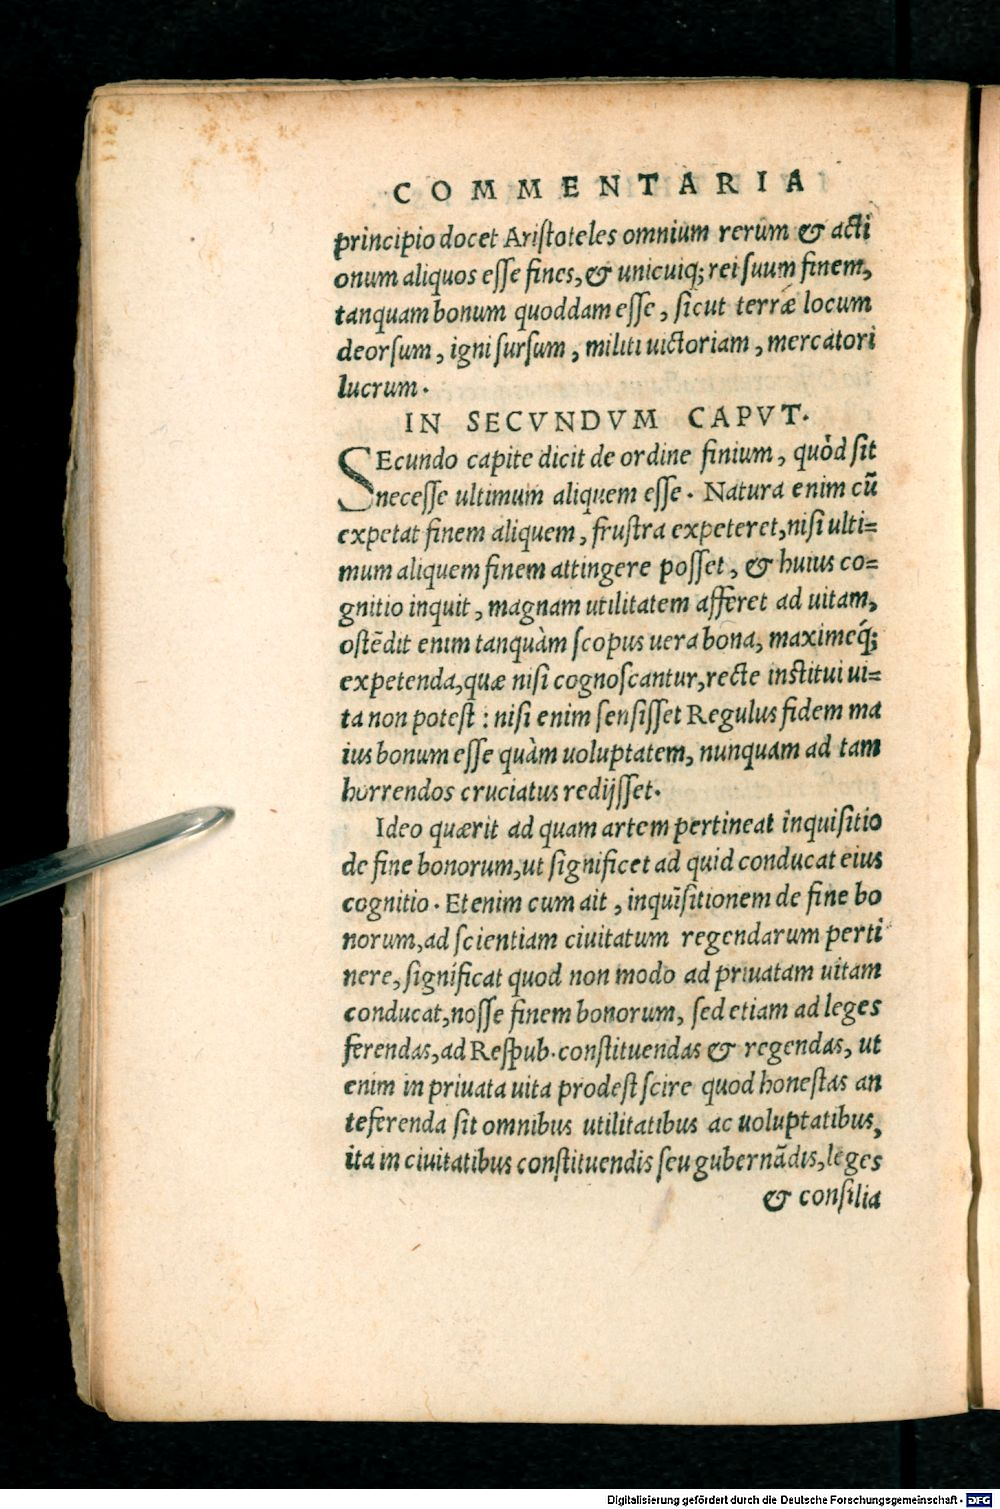 COMMENTARIA
principio docet Aristoteles omnium rerum & acti
onum aliquos esse fines, & unicuiq; rei suum finem,
tanquam bonum quoddam esse, sicut terræ locum
deorsum, igni sursum, militi uictoriam, mercatori
lucrum.
IN SECVNDVM CAPVT.
SEcundo capite dicit de ordine finium, quòd sit
necesse ultimum aliquem esse. Natura enim cũ
expetat finem aliquem, frustra expeteret, nisi ulti=
mum aliquem finem attingere posset, & huius co=
gnitio inquit, magnam utilitatem afferet ad uitam,
ostẽdit enim tanquàm scopus uera bona, maximeq́;
expetenda, quæ nisi cognoscantur, recte institui ui=
ta non potest: nisi enim sensisset Regulus fidem ma
ius bonum esse quàm uoluptatem, nunquam ad tam
horrendos cruciatus redijsset.
Ideo quærit ad quam artem pertineat inquisitio
de fine bonorum, ut significet ad quid conducat eius
cognitio. Etenim cum ait, inquisitionem de fine bo
norum, ad scientiam ciuitatum regendarum perti
nere, significat quod non modo ad priuatam uitam
conducat, nosse finem bonorum, sed etiam ad leges
ferendas, ad Respub. constituendas & regendas, ut
enim in priuata uita prodest scire quod honestas an
teferenda sit omnibus utilitatibus ac uoluptatibus,
ita in ciuitatibus constituendis seu gubernãdis, leges
& consilia
Digitalisierung gefördert durch die Deutsche Forschungsgemeinschaft - DFG